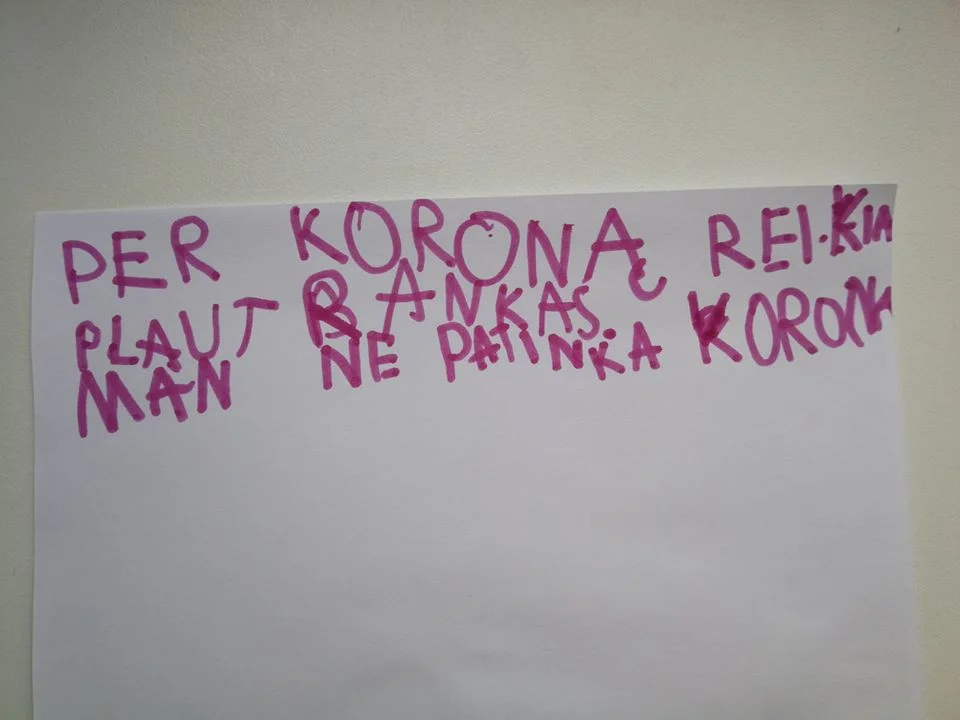 PER KORONĄ REI.KIA
PLAUT RANKAS.
MAN NE PATINKA KORONA